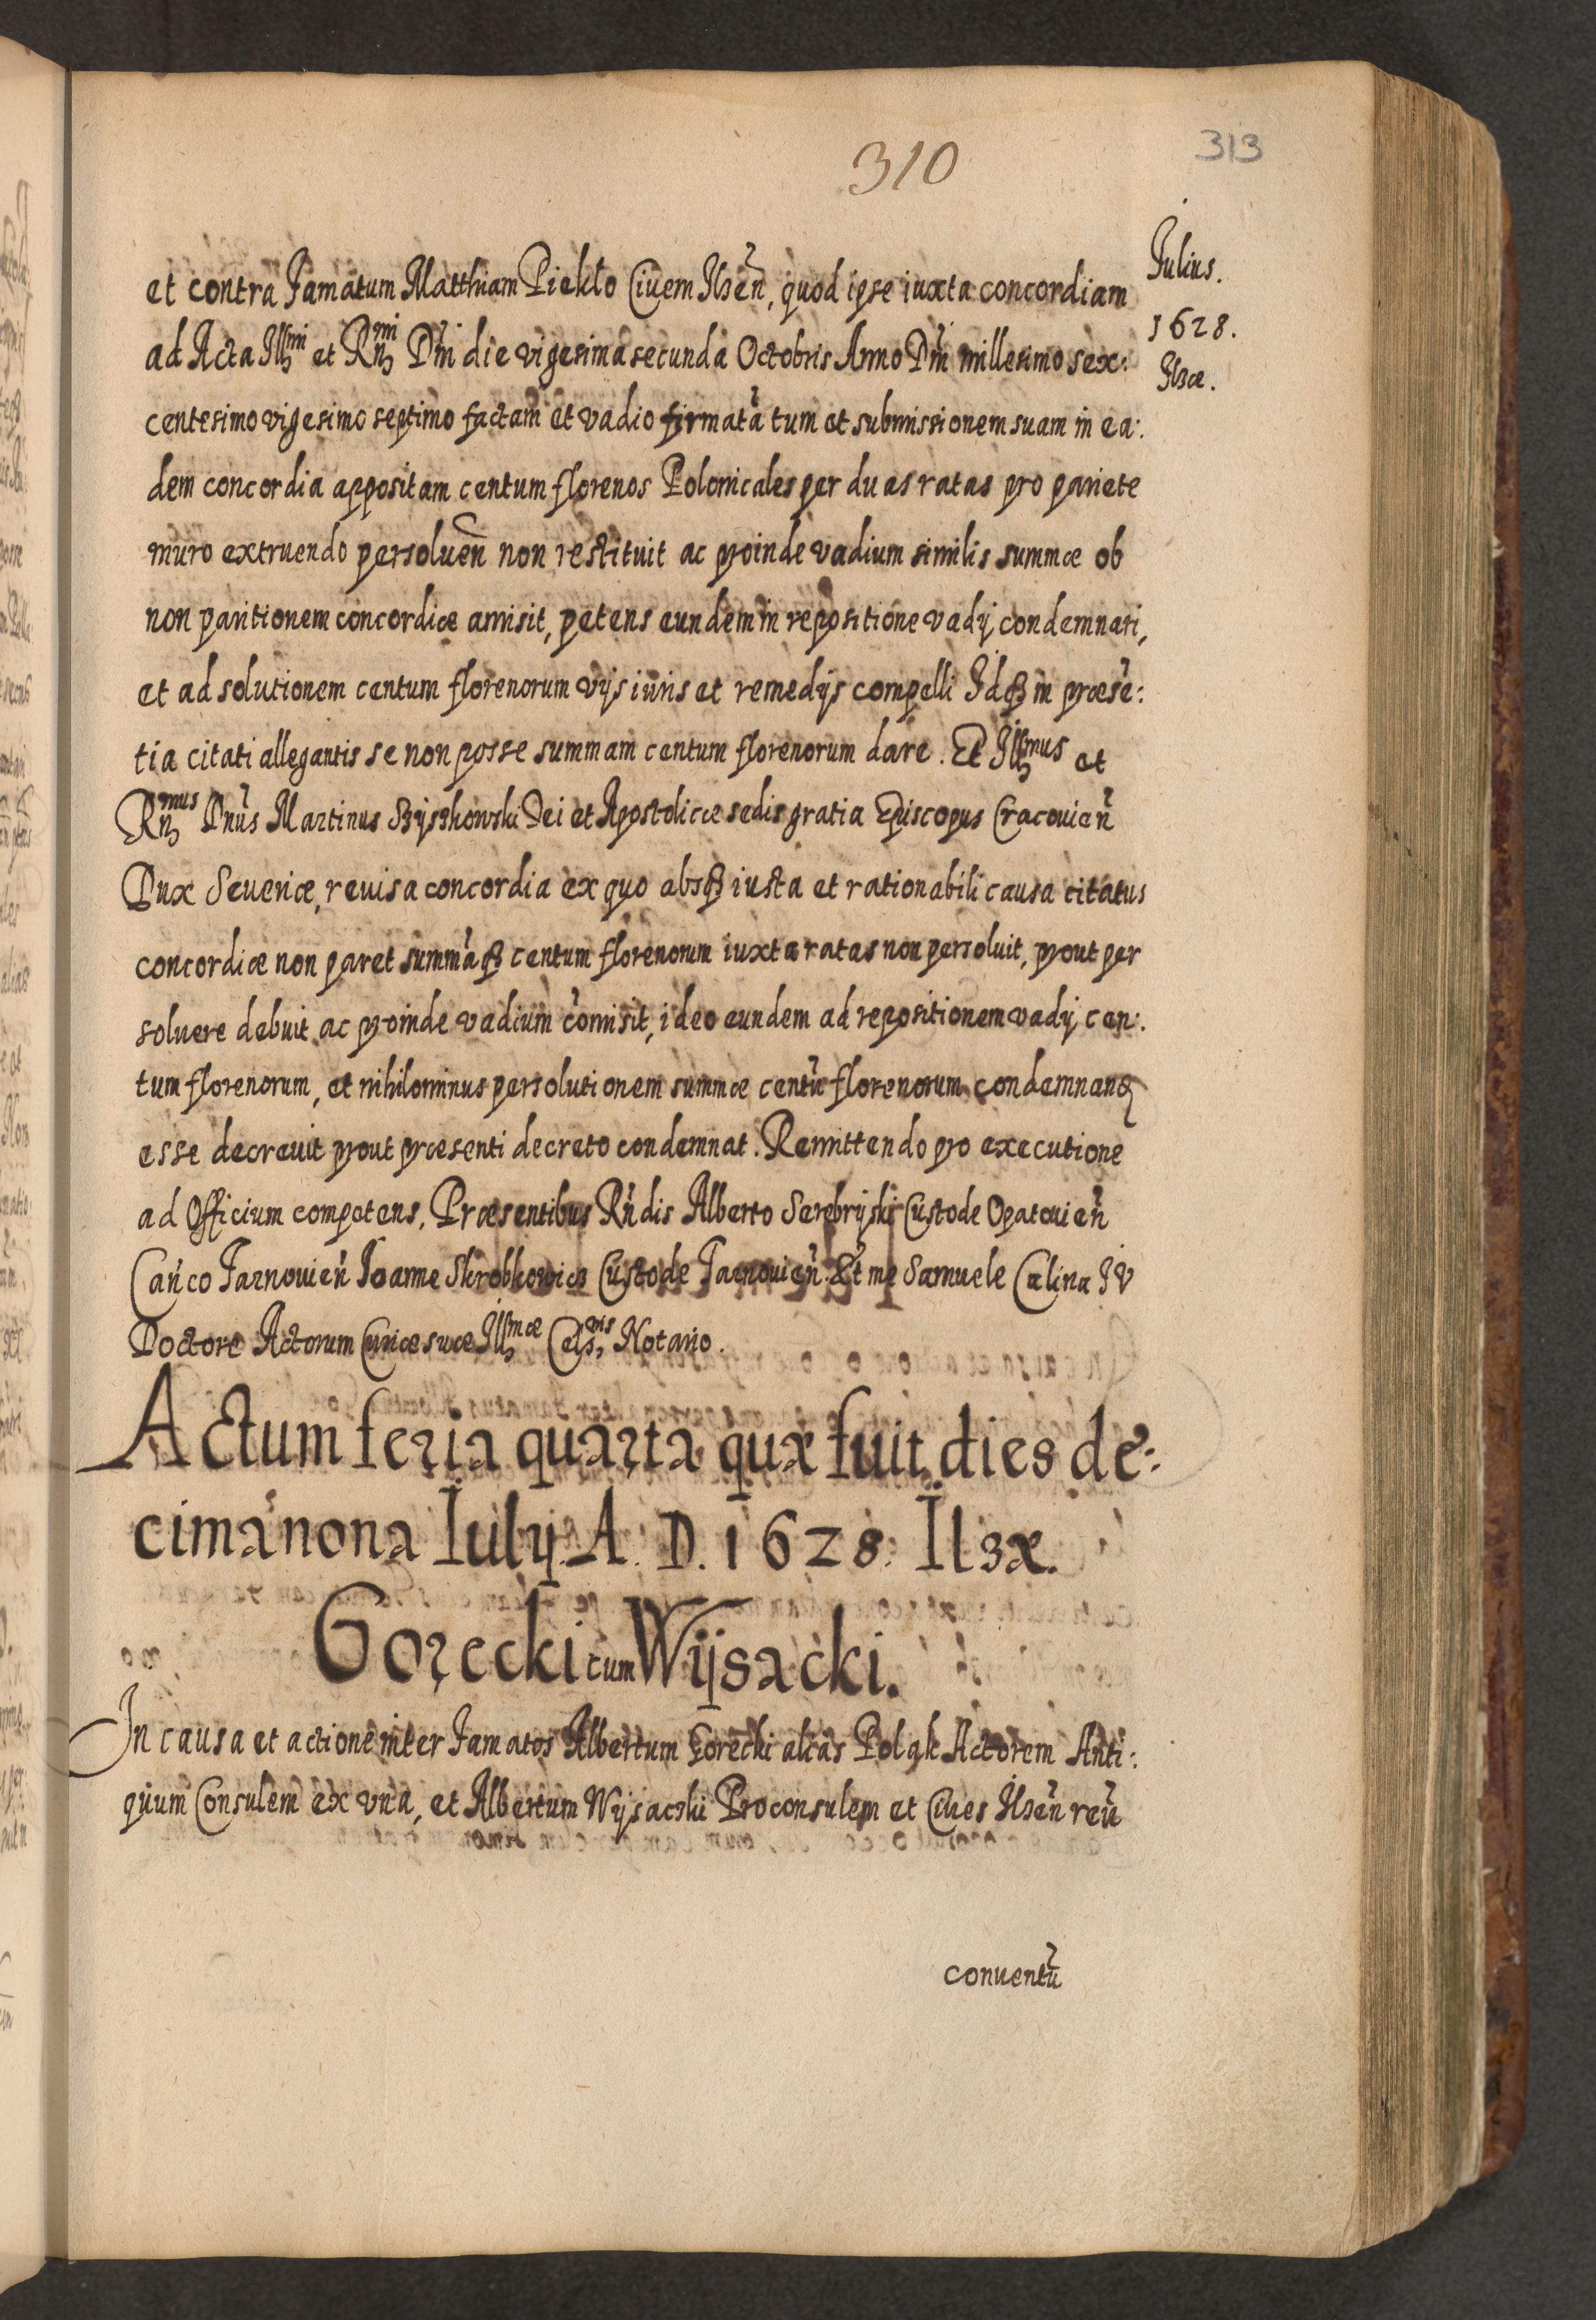 310
313
Julius.
1628.
Ilzæ.
et contra Famatum Matthiam Piekło Ciuem Ilzeñ, quod ipse iuxta concordiam
ad Acta Illmi et Rñmi Dñi die vigesima secunda Octobris Anno Dñi millesimo sex:
centesimo vigesimo septimo factam et vadio firmatã tum et submissionem suam in ea:
dem concordia appositam centum florenos Polonicales per duas ratas pro pariete
muro extruendo persoluen̄ non restituit ac proinde vadium similis summæ ob
non paritionem concordiæ amisit, petens eundem in repositione vadij condemnari,
et ad solutionem centum florenorum vijs iuris et remedijs compelli Idqꝫ in præsẽ:
tia citati allegantis se non posse summam centum florenorum dare. Et Illmus et
Rñmus Dñus Martinus Szyszkowski Dei et Apostolicæ sedis gratia Episcopus Cracouieñ
Dux Seueriæ, reuisa concordia ex quo absqꝫ iusta et rationabili causa citatus
concordiæ non paret summãqꝫ centum florenorum iuxta ratas non persoluit, prout per
soluere debuit ac proinde vadium cõmisit, ideo eundem ad repositionem vadij cen:
tum florenorum, et nihilominus persolutionem summæ centũ florenorum condemnand
esse decreuit prout præsenti decreto condemnat. Remittendo pro executione
ad Officium competens. Præsentibus Rñdis Alberto Serebryski Custode Opatouieñ
Cañco Tarnouieñ Ioanne Skrobkowicz Custode Tarnouieñ. Et me Samuele Calina I V
Doctore Actorum Curiæ suæ Illmæ Celsnis Notario.
Actum feria quarta quæ fuit dies de:
cima nona Iulij A. D. 1628. Ilzæ.
Gorecki cum Wysacki.
In causa et actione inter Famatos Albertum Gorecki alias Polak Actorem Anti:
quum Consulem ex vna, et Albertum Wysacki Proconsulem et Ciues Ilzeñ reũ
conuentũ